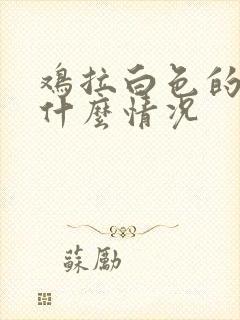 鸡拉白色的
什麼情况
蘇勵